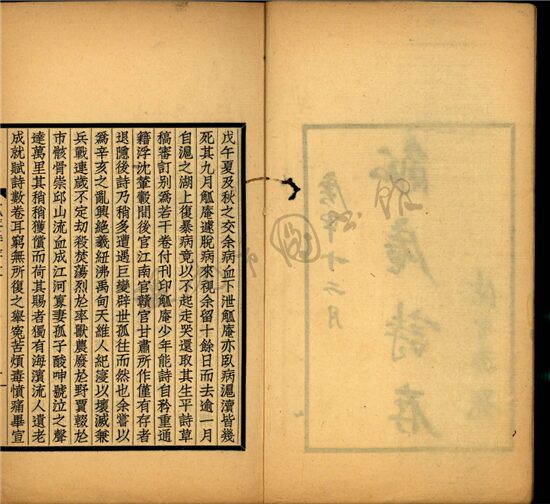 觚庵詩存
庚申十二月
戊午夏及秋之交余病血下泄觚庵亦臥病滬瀆皆幾
死其九月觚庵遽脫病來視余留十餘日而去逾一月
自滬之湖上復暴病竟以不起走哭還取其生平詩草
稿審訂别爲若干卷付刊印觚庵少年能詩自矜重通
籍浮沈輦轂間後官江南官贛官甘肅所作僅有存者
退隱後詩乃稍多遭遇巨變辟世孤往而然也余嘗以
爲辛亥之亂興絕羲紐沸禹甸天維人紀寖以壞滅兼
兵戰連歲不定劫殺焚蕩烈於率獸農廢於野賈輟於
市骸骨崇邱山流血成江河寡妻孤子酸呻號泣之聲
達萬里其稍稍獲償而荷其賜者獨有海濱流人遺老
成就賦詩數卷耳窮無所復之舉冤苦煩毒憤痛畢宣